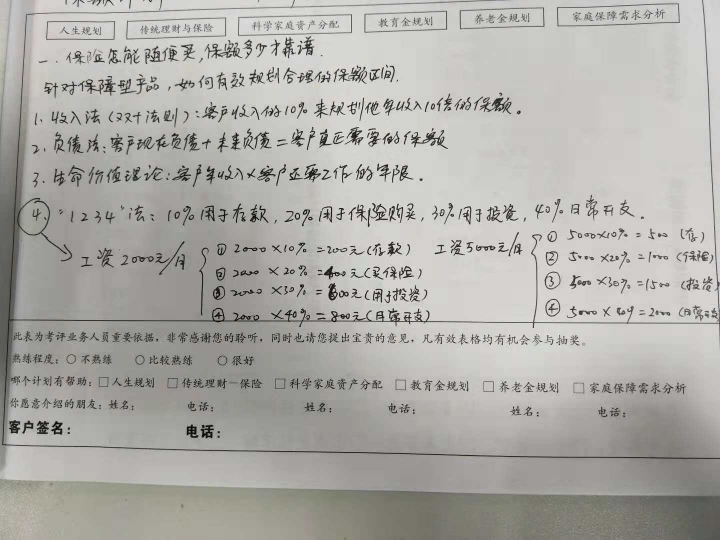 人生规划 传统理财与保险 科学家庭资产分配 教育金规划 养老金规划 家庭保障需求分析
一.保险怎能随便买,保额多少才靠谱.
针对保障型产品,如何有效规划合理的保额区间.
1.收入法(双十法则):客户收入的10%来规划他年收入10倍的保额。
2.负债法:客户现在负债+未来负债=客户真正需要的保额
3.生命价值理论:客户年收入×客户还要工作的年限。
4."1234"法:10%用于存款,20%用于保险购买,30%用于投资,40%日常开支。
工资2000元/月
① 2000×10%=200元(存款)
② 2000×20%=400元(买保险)
③ 2000×30%=600元(用于投资)
④ 2000×40%=800元(日常开支)
工资5000元/月
① 5000×10%=500(存)
② 5000×20%=1000(保险)
③ 5000×30%=1500(投资)
④ 5000×40%=2000(日常开支)
此表为考评业务人员重要依据,非常感谢您的聆听,同时也请您提出宝贵的意见,凡有效表格均有机会参与抽奖。
熟练程度:○不熟练 ○比较熟练 ○很好
哪个计划有帮助:□人生规划 □传统理财一保险 □科学家庭资产分配 □教育金规划 □养老金规划 □家庭保障需求分析
你愿意介绍的朋友:姓名: 电话: 姓名: 电话: 姓名: 电话:
客户签名: 电话: